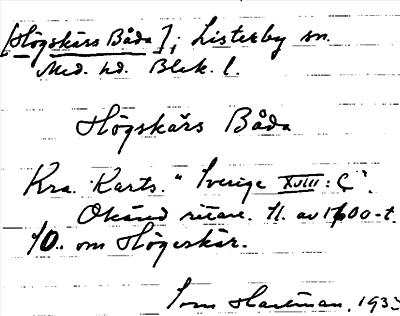 [Högskärs Båda]; Listerby sn.
Med. hd. Blek. l.
Högskärs Båda
Kra. Karts. "Sverige XVIII: C".
Okänd ritare. Sl. av 1600-t.
O. om Högeskär.
Hartman, 193